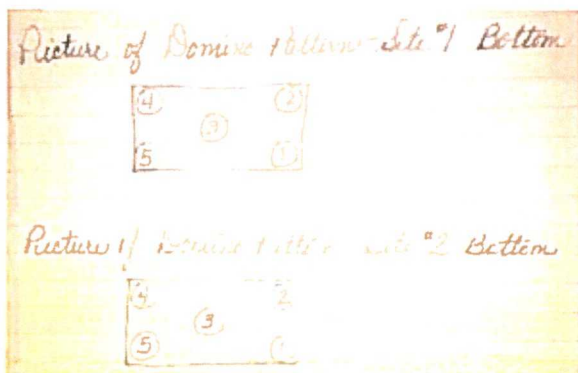 Picture of Domino Pattern - Site #1 Bottom
4 2
3
5 1
Picture of Domino Pattern Site #2 Bottom
4 2
3
5 1